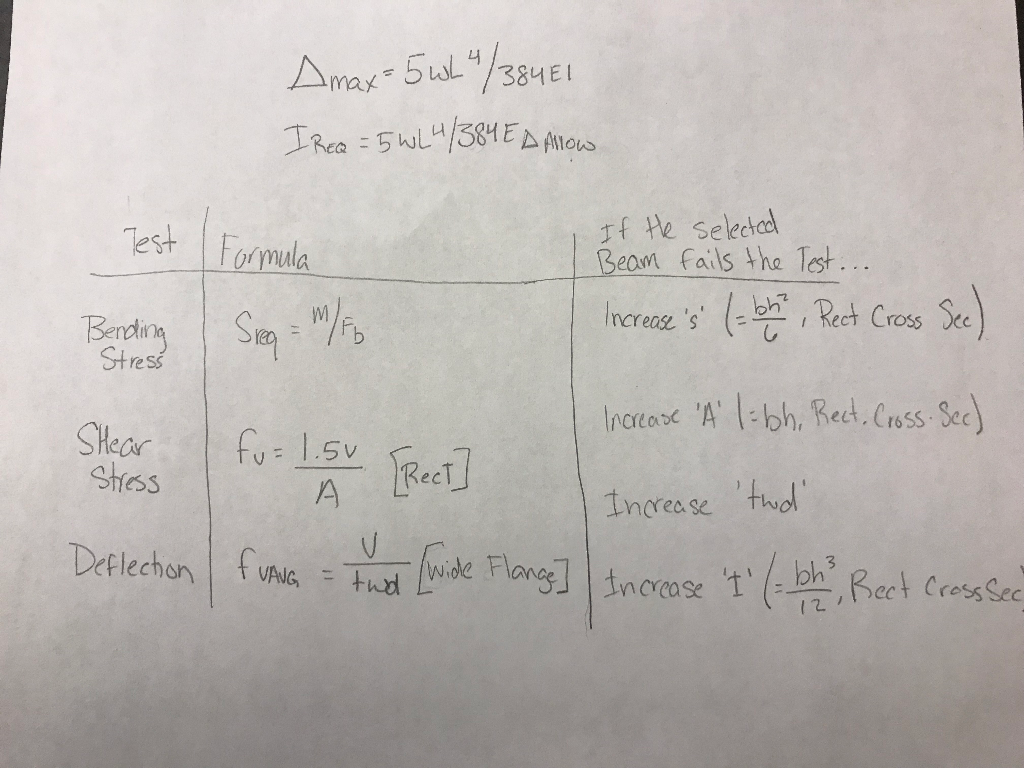 Δmax = 5wL⁴/384EI
IREQ = 5wL⁴/384E Δ Allow
Test | Formula | If the Selected
Beam fails the Test...
Bending
Stress
Sreq = M/Fb
Increase 's' (= bh²/6, Rect Cross Sec)
SHear
Stress
fv = 1.5v/A [RecT]
Increase 'A' (=bh, Rect. Cross. Sec)
Increase 'twd'
Deflection
fVAVG = V/twd [wide Flange]
Increase 'I' (= bh³/12, Rect Cross Sec)